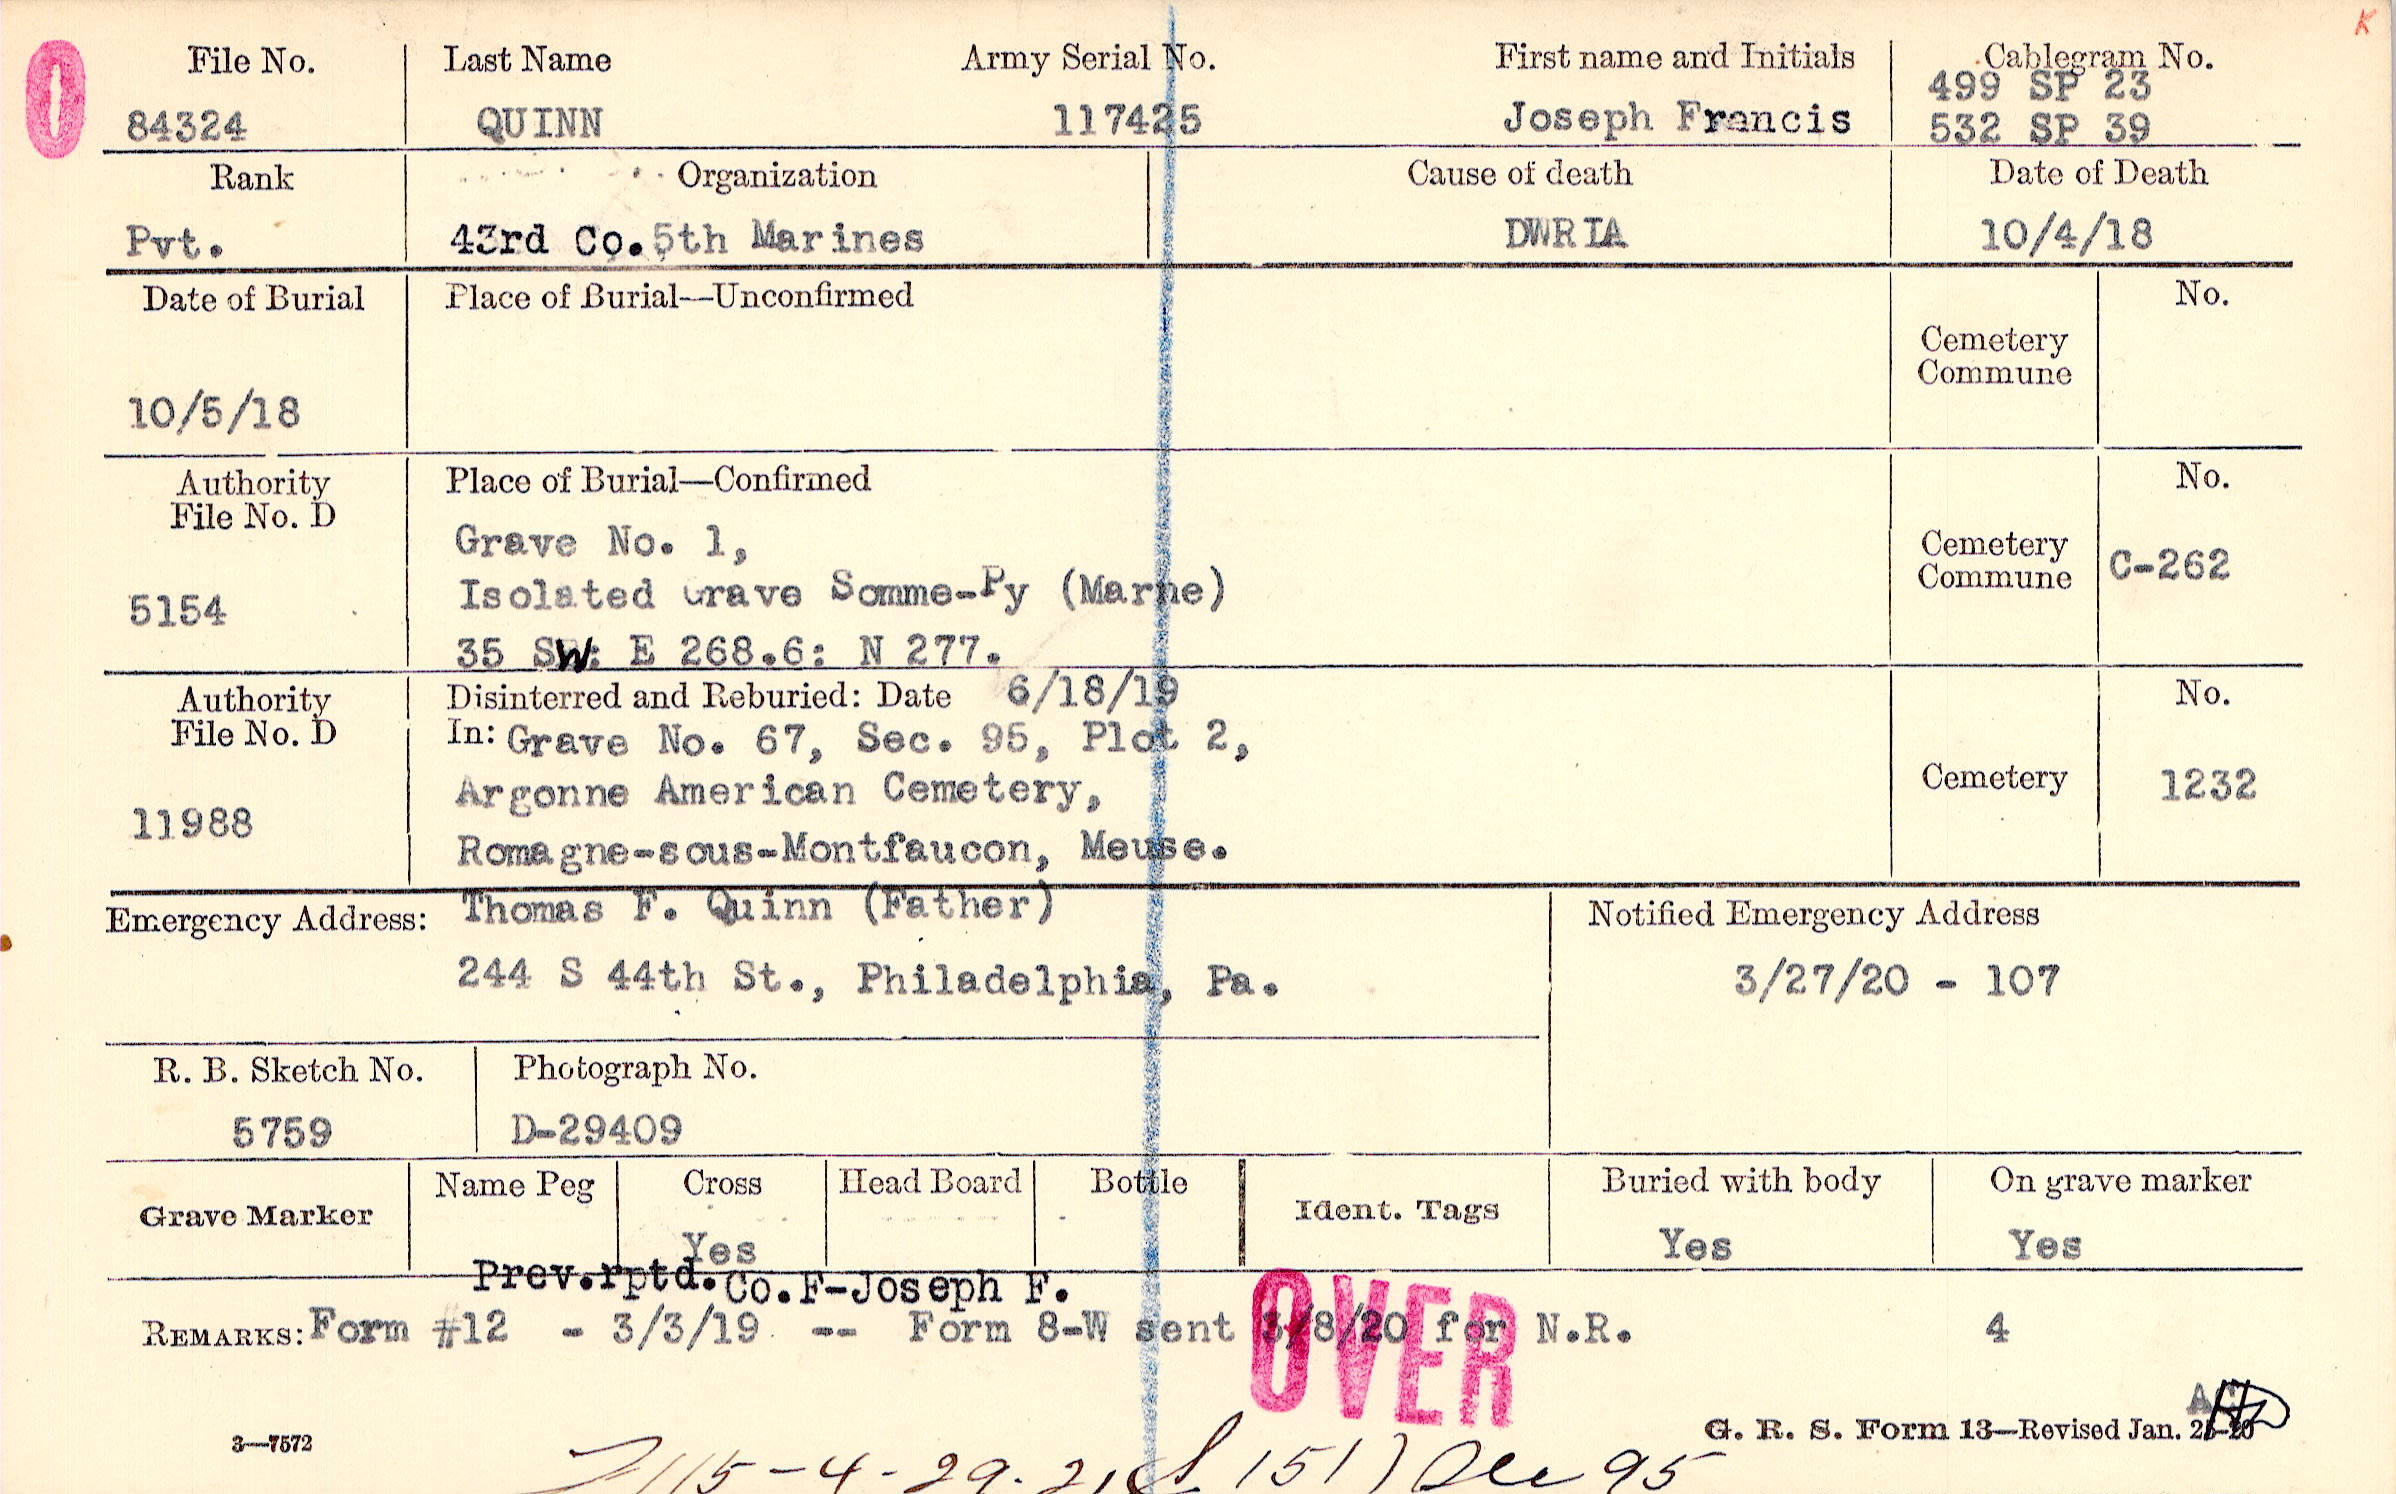 K
0
File No. Last Name Army Serial No. First name and Initials Cablegram No.
499 SP 23
84324 QUINN 117425 Joseph Francis 532 SP 39
Rank Organization Cause of death Date of Death
Pvt. 43rd Co. 5th Marines DWRIA 10/4/18
Date of Burial Place of Burial—Unconfirmed No.
Cemetery
Commune
10/5/18
Authority Place of Burial—Confirmed No.
File No. D
Grave No. 1,
Cemetery
Commune C-262
5154 Isolated Grave Somme-Py (Marne)
35 SW: E 268.6: N 277.
Authority Disinterred and Reburied: Date 6/18/19 No.
File No. D In: Grave No. 67, Sec. 95, Plot 2,
11988 Argonne American Cemetery, Cemetery 1232
Romagne-sous-Montfaucon, Meuse.
Emergency Address: Thomas F. Quinn (Father) Notified Emergency Address
244 S 44th St., Philadelphia, Pa. 3/27/20 - 107
R. B. Sketch No. Photograph No.
5759 D-29409
Grave Marker Name Peg Cross Head Board Bottle Ident. Tags Buried with body On grave marker
Yes Yes Yes
Prev.rptd. Co.F-Joseph F.
REMARKS: Form #12 - 3/3/19 -- Form 8-W sent 3/8/20 for N.R. 4
OVER
3—7572 G. R. S. Form 13—Revised Jan.
115-4-29-21 151) 95